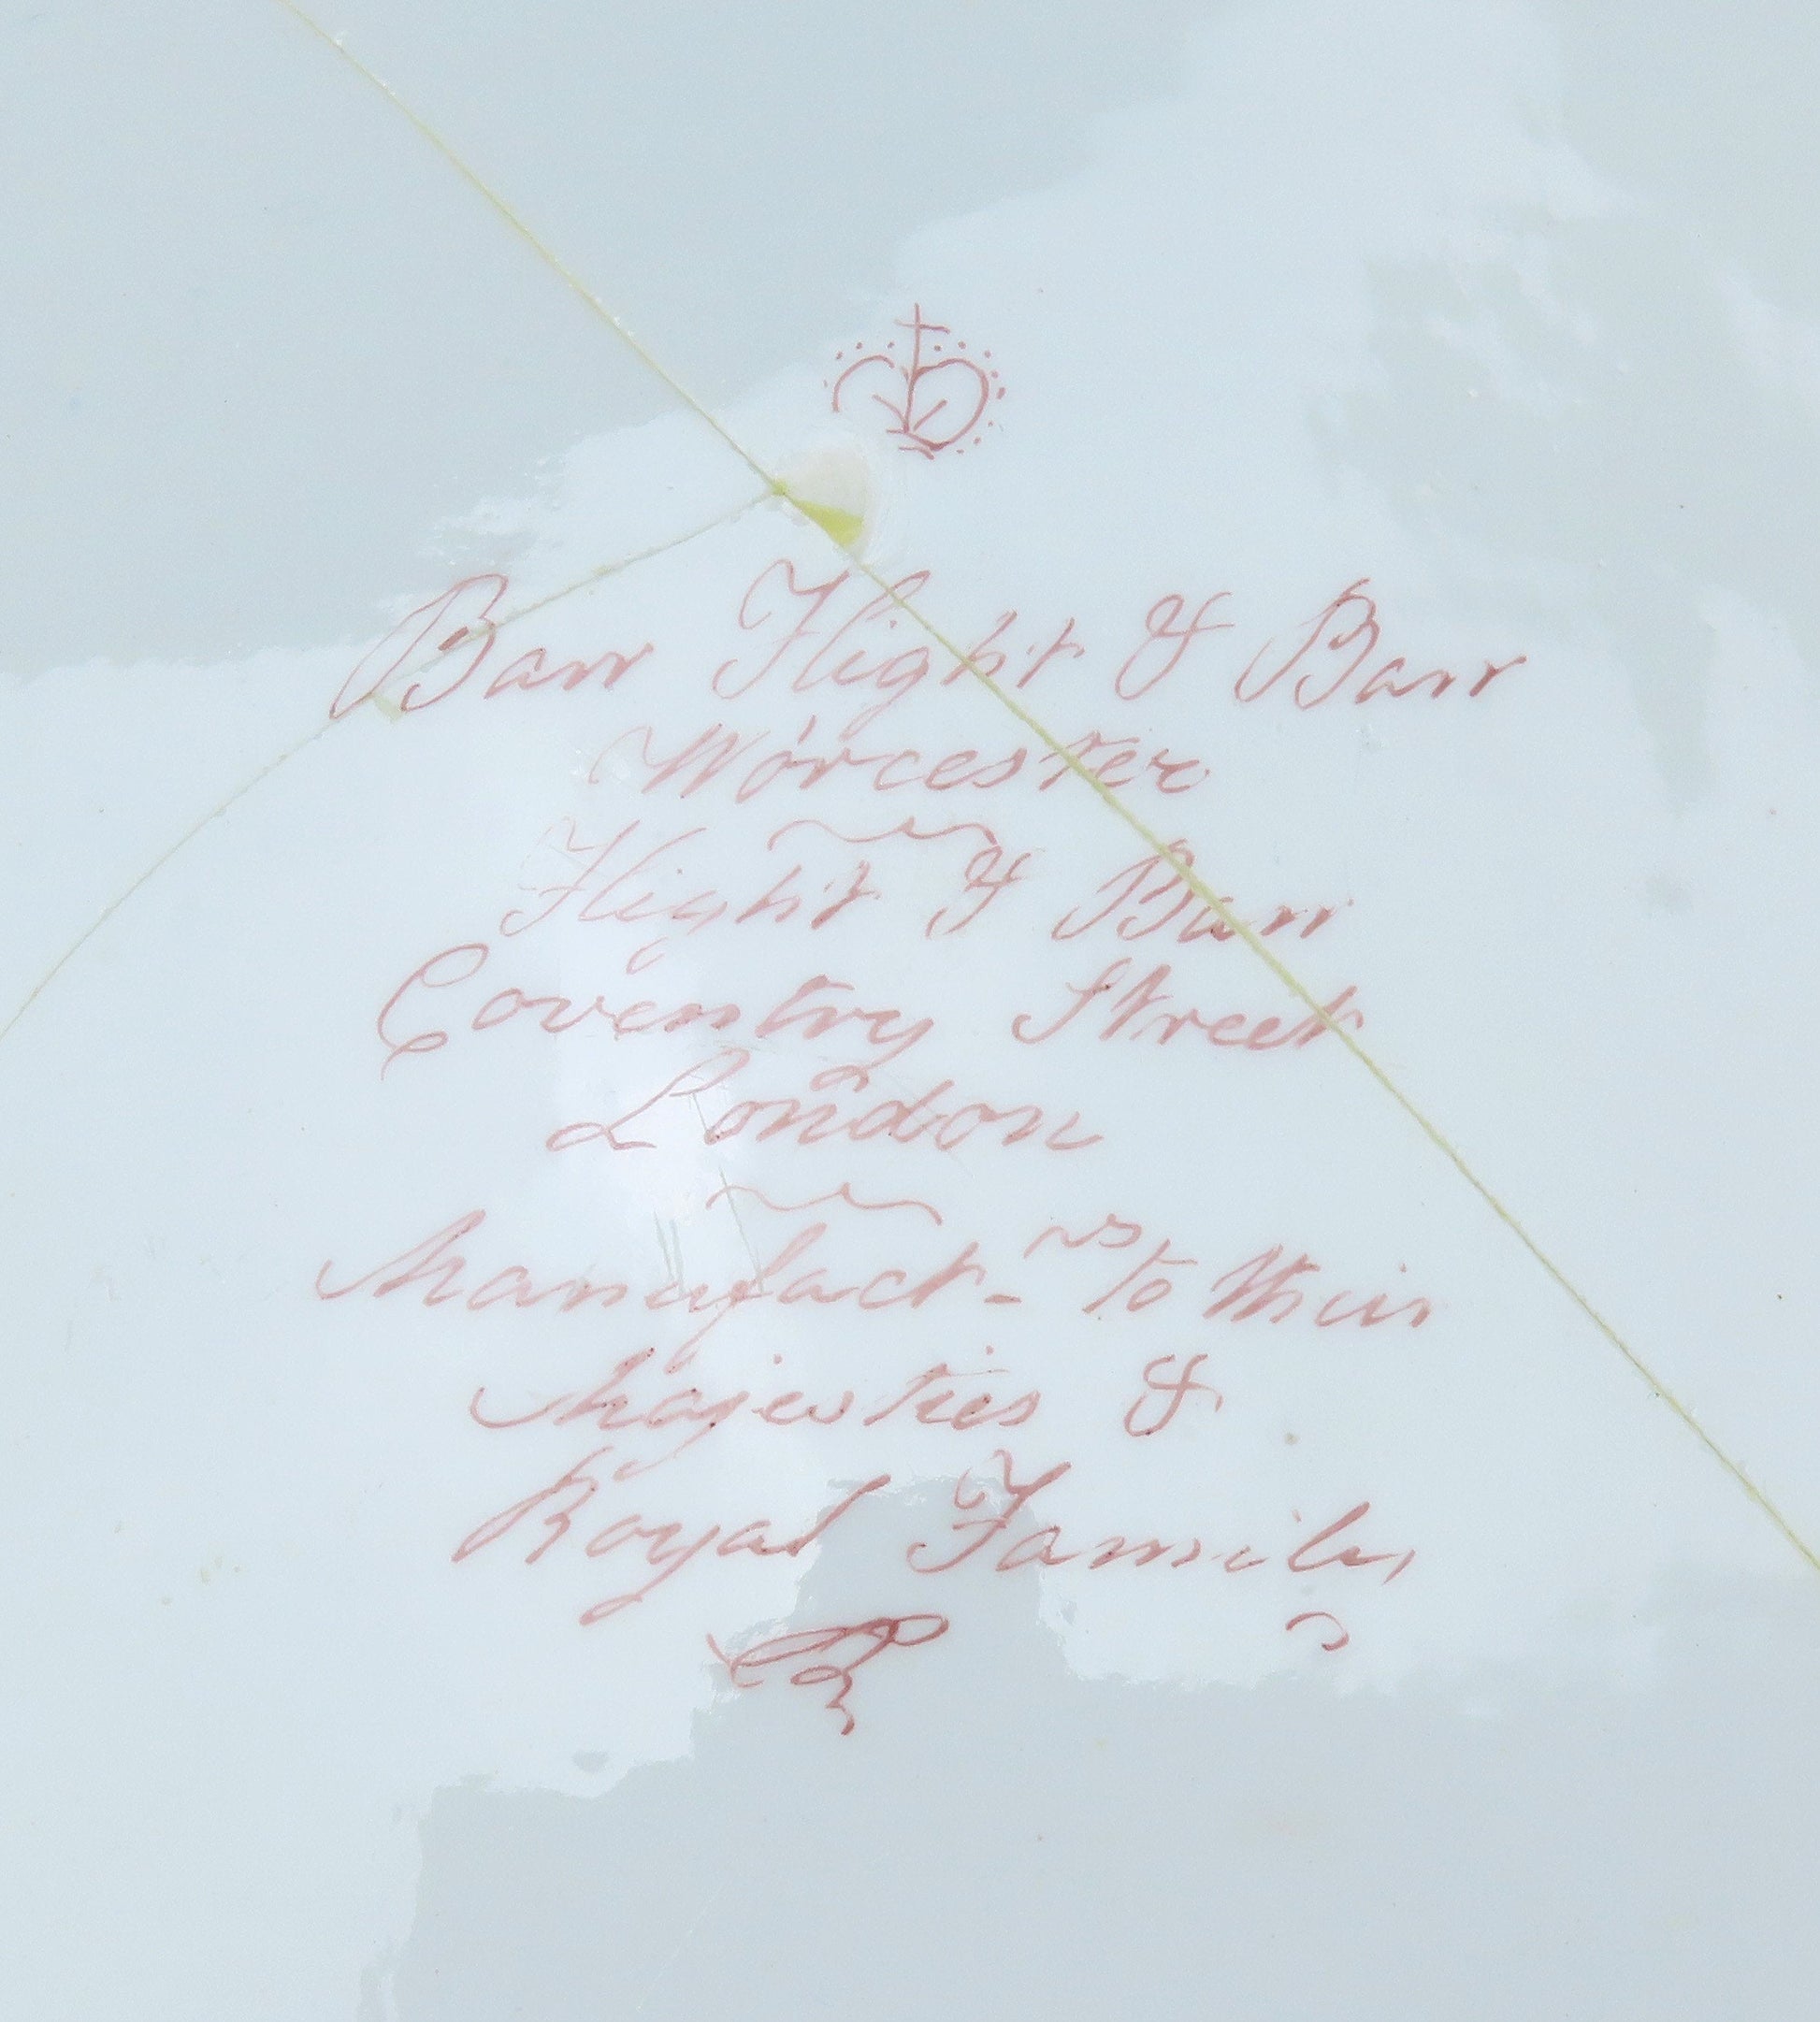 Barr Flight & Barr
Worcester
Flight & Barr
Coventry Street
London
Manufact-rs to their
Majesties &
Royal Family